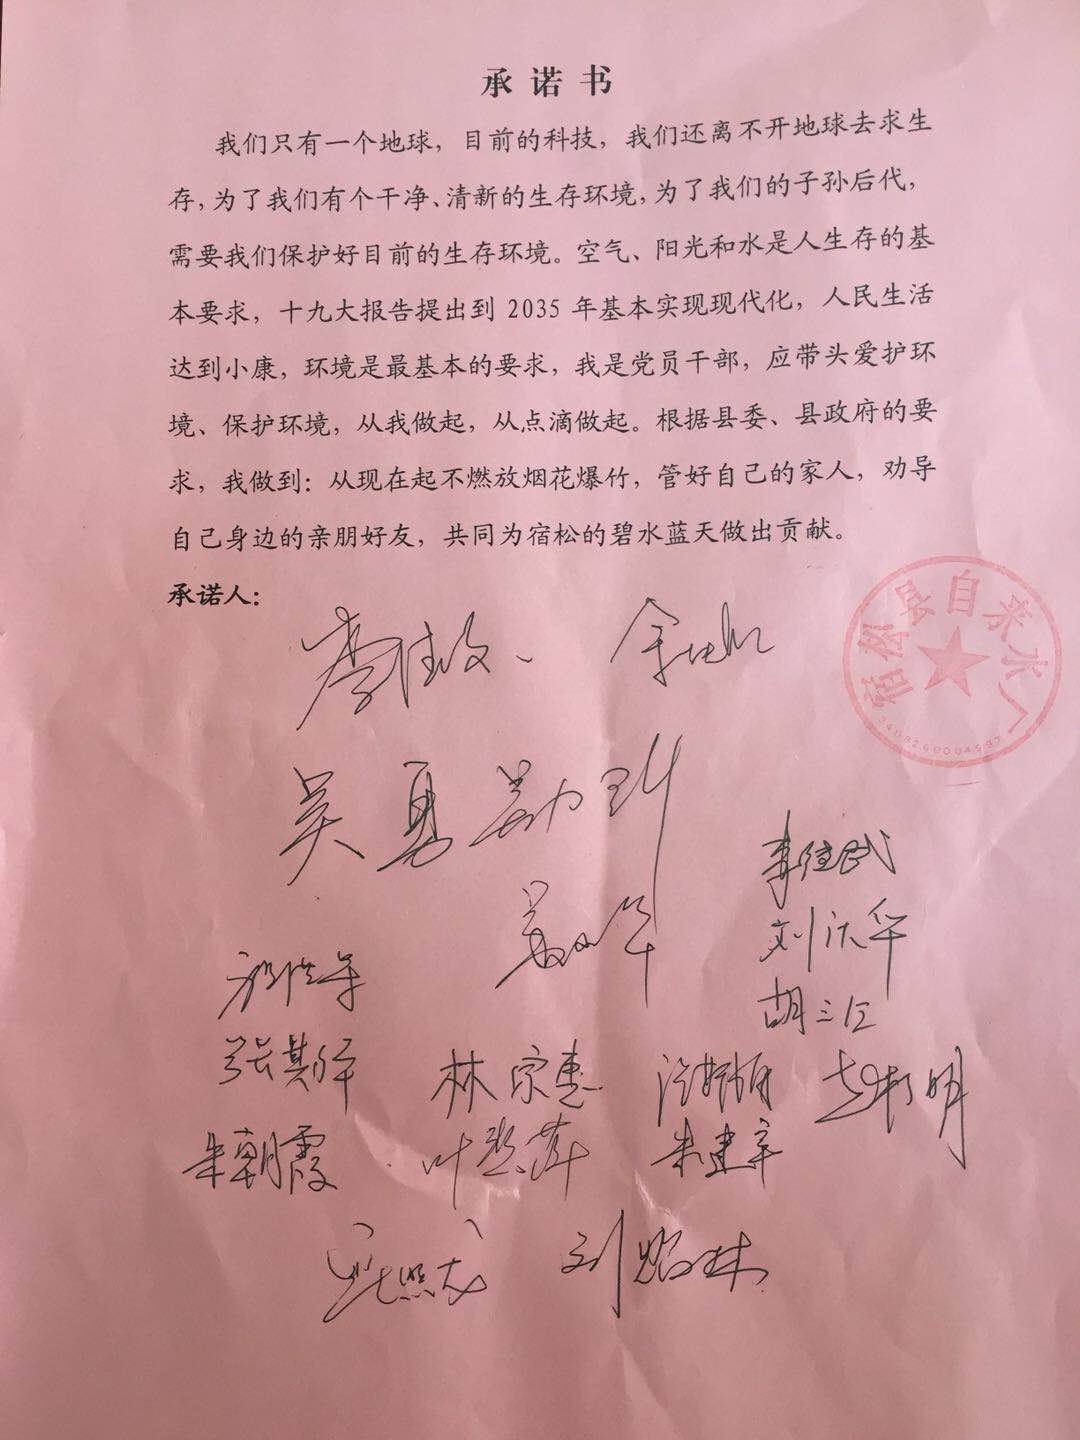 承诺书
我们只有一个地球，目前的科技，我们还离不开地球去求生
存，为了我们有个干净、清新的生存环境，为了我们的子孙后代，
需要我们保护好目前的生存环境。空气、阳光和水是人生存的基
本要求，十九大报告提出到 2035 年基本实现现代化，人民生活
达到小康，环境是最基本的要求，我是党员干部，应带头爱护环
境、保护环境，从我做起，从点滴做起。根据县委、县政府的要
求，我做到：从现在起不燃放烟花爆竹，管好自己的家人，劝导
自己身边的亲朋好友，共同为宿松的碧水蓝天做出贡献。
承诺人：
宿松县自来水厂
吴勇
胡三江
林宗惠
朱朝霞
朱建